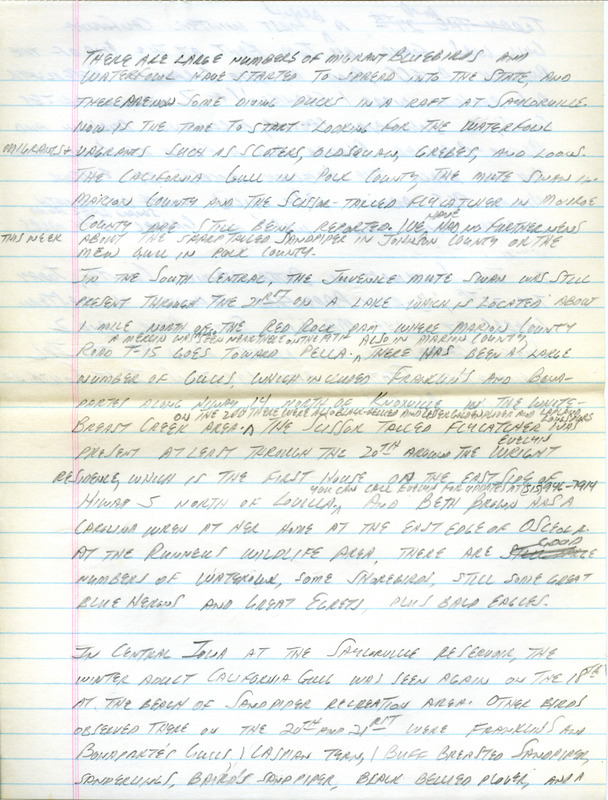 THERE ARE LARGE NUMBERS OF MIGRANT BLUEBIRDS AND
WATERFOWL HAVE STARTED TO SPREAD INTO THE STATE, AND
THERE ARE NOW SOME DIVING DUCKS IN A RAFT AT SAYLORVILLE.
NOW IS THE TIME TO START LOOKING FOR THE WATERFOWL
MIGRANTS + VAGRANTS SUCH AS SCOTERS, OLDSQUAW, GREBES, AND LOONS.
THE CALIFORNIA GULL IN POLK COUNTY, THE MUTE SWAN IN
MARION COUNTY AND THE SCISSOR-TAILED FLYCATCHER IN MONROE
COUNTY ARE STILL BEING REPORTED. I'VE HAD NO FURTHER NEWS
HAVE
THIS WEEK ABOUT THE SHARP TAILED SANDPIPER IN JOHNSON COUNTY OR THE
MEW GULL IN POLK COUNTY.
IN THE SOUTH CENTRAL, THE JUVENILE MUTE SWAN WAS STILL
PRESENT THROUGH THE 21RST ON A LAKE WHICH IS LOCATED ABOUT
1 MILE NORTH OF THE RED ROCK DAM WHERE MARION COUNTY
A MERLIN WAS SEEN NEAR THERE ON THE 19TH ALSO IN MARION COUNTY,
ROAD T-15 GOES TOWARD PELLA. THERE HAS BEEN A LARGE
NUMBER OF GULLS, WHICH INCLUDED FRANKLIN'S AND BONA-
PARTES ALONG HIWAY 14 NORTH OF KNOXVILLE IN THE WHITE-
ON THE 20TH THERE WERE ALSO BLACK-BELLIED AND LESSER GOLDEN PLOVER AND LAPLAND LONGSPURS
BREAST CREEK AREA. THE SCISSOR TAILED FLYCATCHER WAS
PRESENT AT LEAST THROUGH THE 20TH AROUND THE WRIGHT
EVELYN
RESIDENCE, WHICH IS THE FIRST HOUSE ON THE EAST SIDE OF
YOU CAN CALL EVELYN FOR UPDATES AT 515/946-7914
HIWAY 5 NORTH OF LOVILLA, AND BETH BROWN HAS A
CAROLINA WREN AT HER HOME AT THE EAST EDGE OF OSCEOLA.
AT THE RUNNELS WILDLIFE AREA THERE ARE GOOD
NUMBERS OF WATERFOWL, SOME SHOREBIRD, STILL SOME GREAT
BLUE HERONS AND GREAT EGRETS, PLUS BALD EAGLES.
IN CENTRAL IOWA AT THE SAYLORVILLE RESERVOIR, THE
WINTER ADULT CALIFORNIA GULL WAS SEEN AGAIN ON THE 18TH
AT THE BEACH OF SANDPIPER RECREATION AREA. OTHER BIRDS
OBSERVED THERE ON THE 20TH AND 21RST WERE FRANKLIN'S AND
BONAPARTE'S GULLS, CASPIAN TERN, BUFF BREASTED SANDPIPER,
SANDERLINGS, BAIRD'S SANDPIPER, BLACK BELLIED PLOVER, AND A